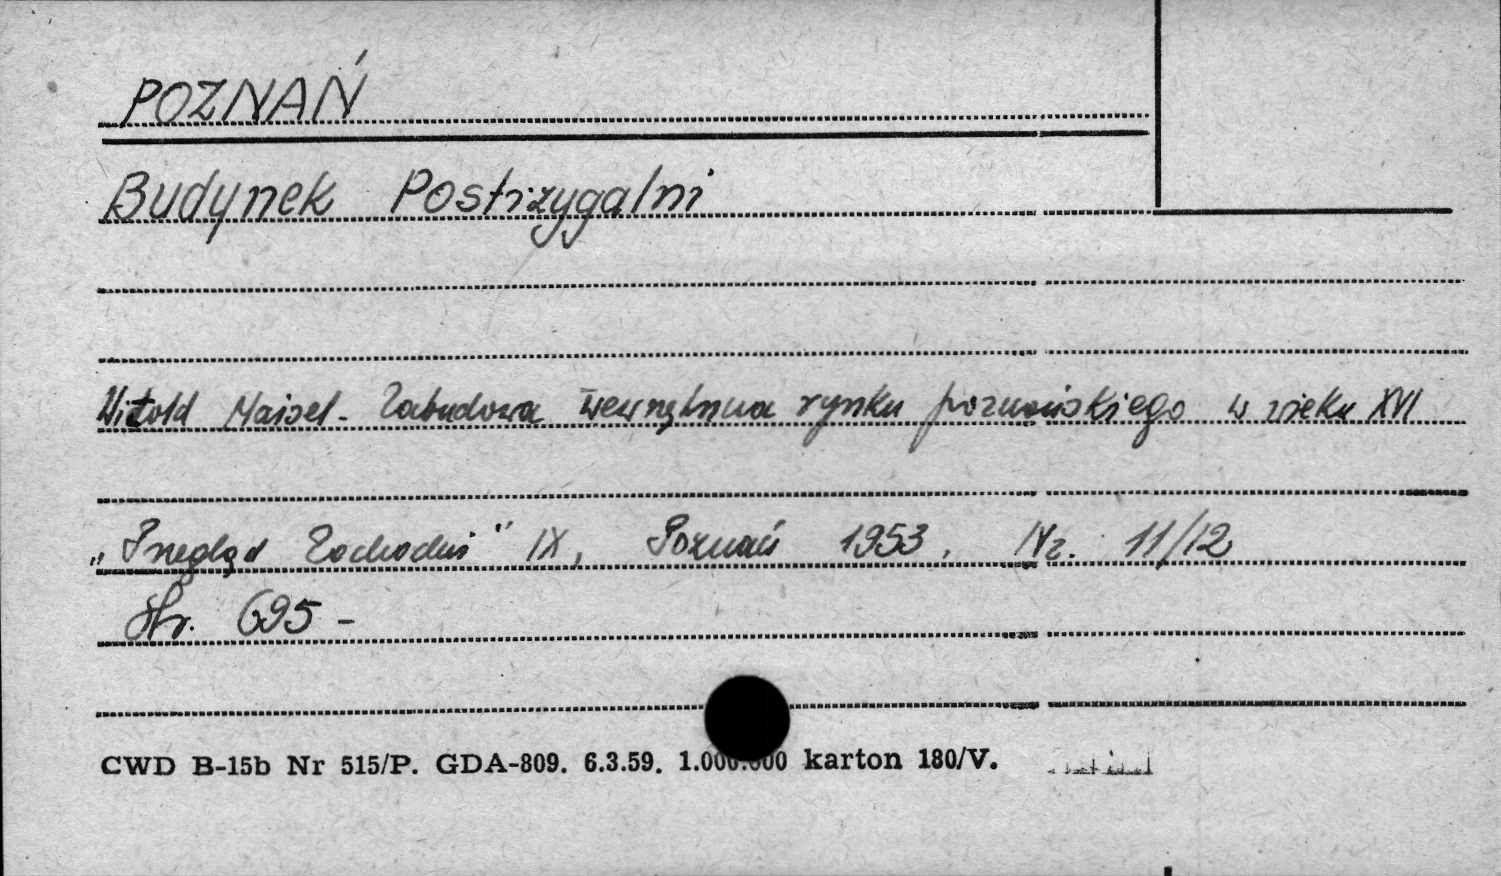 POZNAŃ
Budynek Postrzygalni
Witold Maisel - Zabudowa wewnętrzna rynku poznańskiego w wieku XVI
„Przegląd Zachodni" IX, Poznań 1953, Nr. 11/12
str. 695 -
CWD B-15b Nr 515/P. GDA-809. 6.3.59. 1.000.000 karton 180/V.